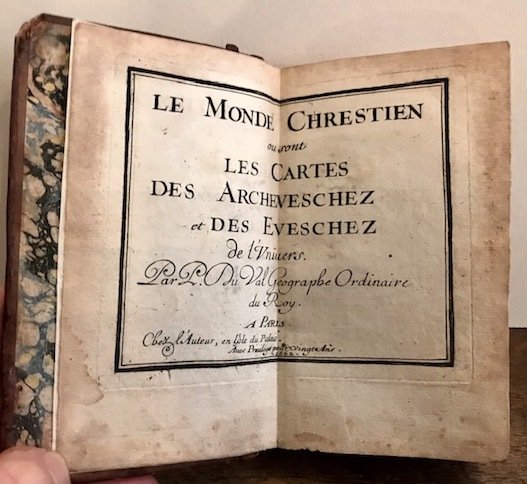 LE MONDE CHRESTIEN
ou sont
LES CARTES
DES ARCHEVESCHEZ
et DES EVESCHEZ
de l'Vniuers.
Par P. Du Val Geographe Ordinaire
du Roy.
A PARIS.
Chez l'Auteur, en l'Isle du Palais
Auec Privilege pour vingt Ans